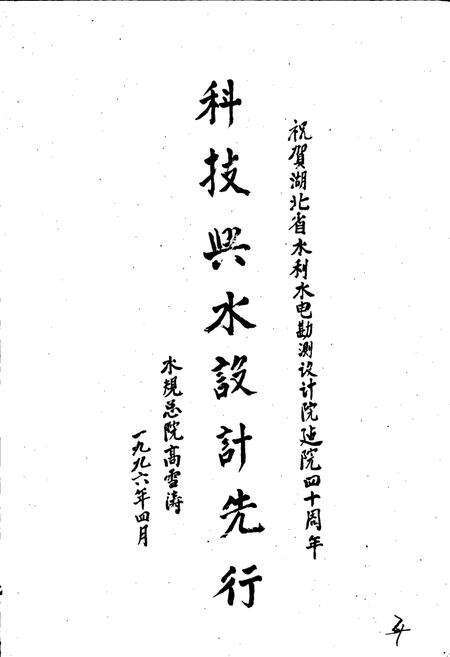 祝賀湖北省水利水电勘测设计院建院四十周年
科技興水設計先行
水規总院高雪涛
一九九六年四月